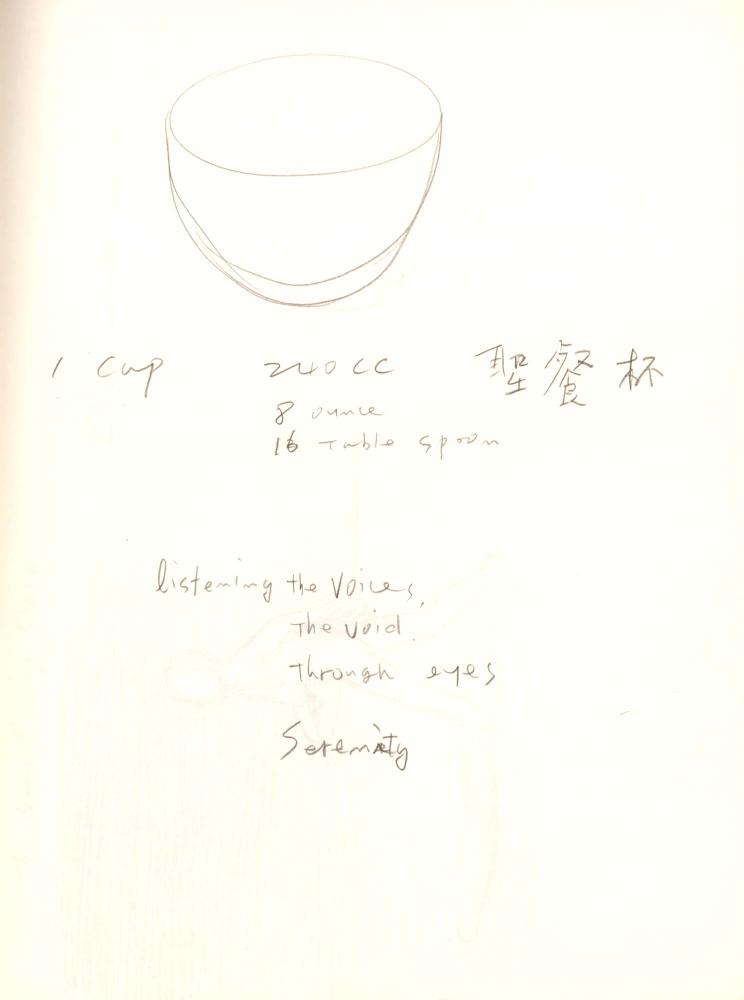 1 Cup 240cc 聖餐杯
8 ounce
16 Table spoon
listening the Voices,
The Void.
Through eyes
Serenity